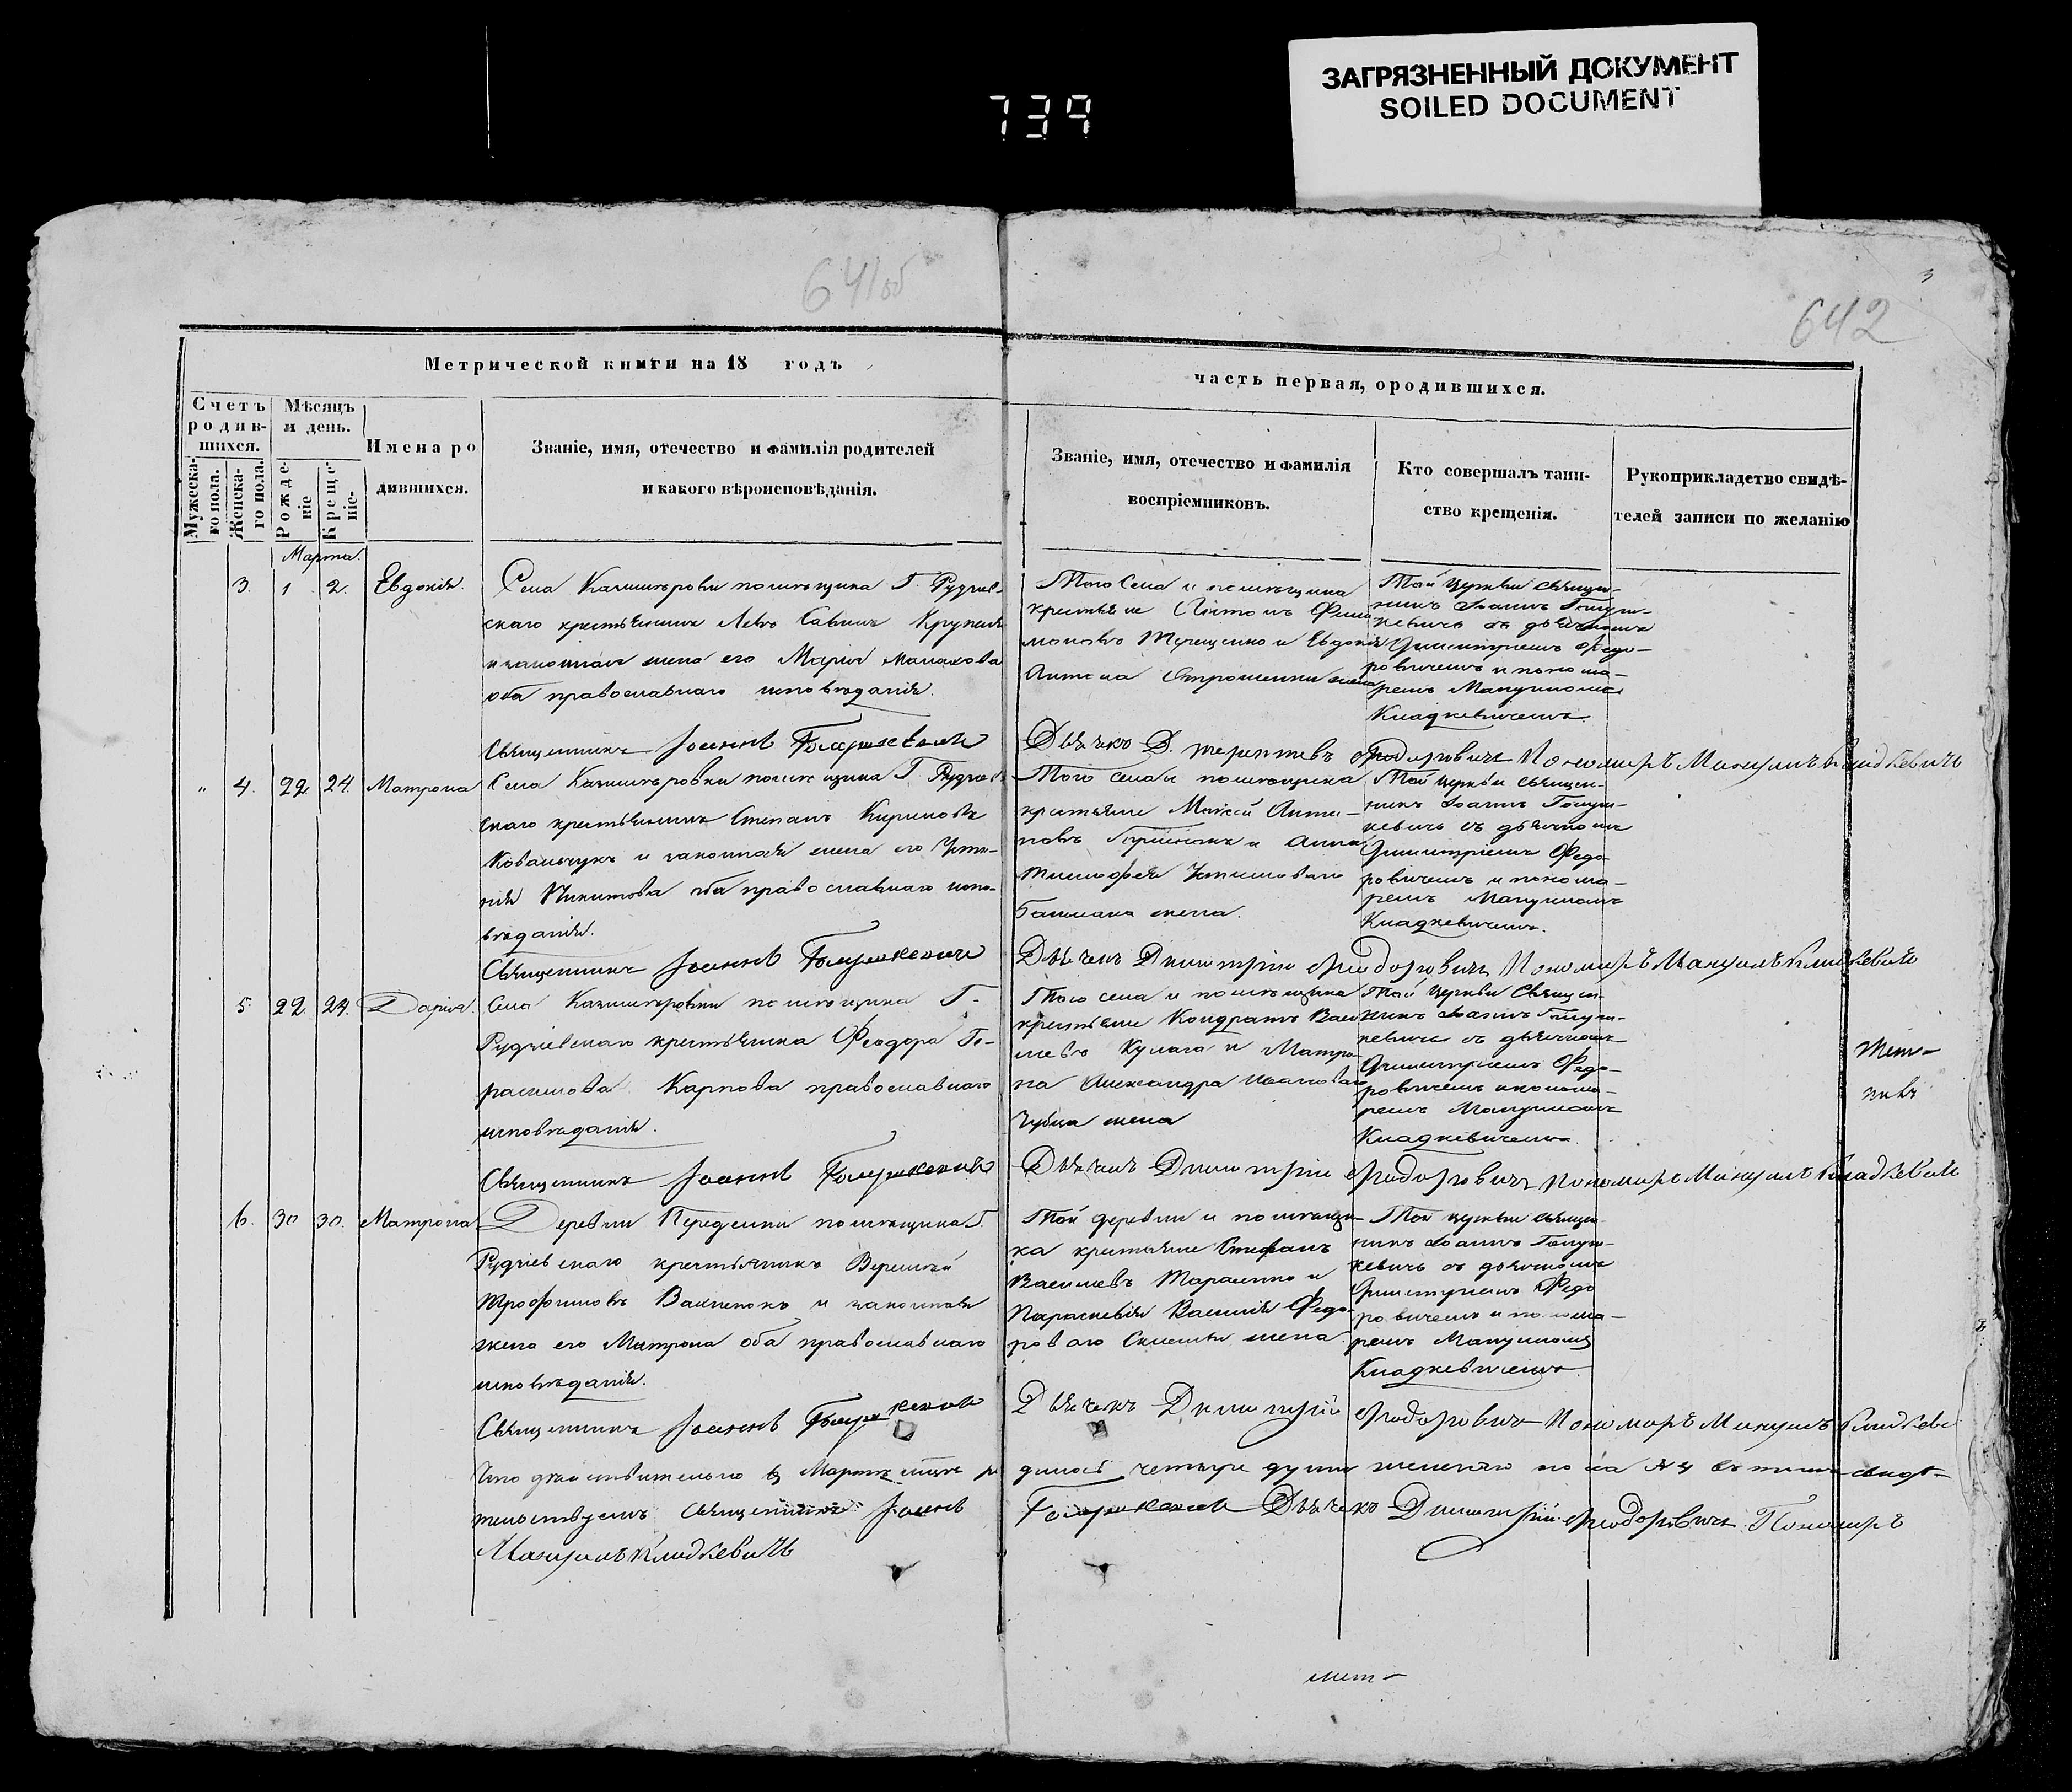 ЗАГРЯЗНЕННЫЙ ДОКУМЕНТ
SOILED DOCUMENT
739
641об
642
3
Метрической книги на 18 годъ
часть первая, ородившихся.
Счетъ родив-шихся.
Мѣсяцъ и день.
Мужеска-го пола.
Женска-го пола.
Рожде-ніе
Креще-ніе.
Имена ро
дившихся.
Званіе, имя, отечество и фамилія родителей
и какого вѣроисповѣданія.
Званіе, имя, отечество и фамилія
воспріемниковъ.
Кто совершалъ таин-
ство крещенія.
Рукоприкладство свидѣ-
телей записи по желанію
Марта.
3. 1 2. Евдокія.
Села Казимѣровки помѣщика Г. Рудчев-
скаго крестьянинъ Левъ Савинъ
и законная жена его Марія
оба православнаго исповѣданія.
Того села и помѣщика
крестьяне Антонъ
Терещенко и Евдокія
Антона жена
Той церкви священ-
никъ Іоаннъ Голуш-
кевичъ съ дьячкомъ
Димитріемъ Федо-
ровичемъ и понома-
ремъ Мануиломъ
Кладкевичемъ.
Священникъ Іоаннъ Голушкевичъ
Дьячекъ Д. Федоровичъ Пономарь Мануилъ Кладкевичъ
" 4. 22. 24. Матрона
Села Казимѣровки помѣщика Г. Рудчев-
скаго крестьянинъ Степанъ Кириловъ
Ковальчукъ и законная жена его Усти-
нія Никитова оба православнаго испо-
вѣданія.
Того села и помѣщика
крестьяне Моисей Анти-
повъ и Анна
Тимофея
жена.
Той церкви священ-
никъ Іоаннъ Голуш-
кевичъ съ дьячкомъ
Димитріемъ Федо-
ровичемъ и понома-
ремъ Мануиломъ
Кладкевичемъ.
Священникъ Іоаннъ Голушкевичъ
Дьячекъ Димитрій Федоровичъ Пономарь Мануилъ Кладкевичъ
5 22. 24. Дарія.
Села Казимѣровки помѣщика Г.
Рудчевскаго крестьянина Феодора Ге-
расимова Карпова православнаго
исповѣданія.
Того села и помѣщика
крестьяне Кондратъ Васи-
льевъ Кулага и Матро-
на Александра Иванова
жена
Той церкви священ-
никъ Іоаннъ Голуш-
кевичъ съ дьячкомъ
Димитріемъ Федо-
ровичемъ и понома-
ремъ Мануиломъ
Кладкевичемъ.
Священникъ Іоаннъ Голушкевичъ
Дьячекъ Димитрій Федоровичъ Пономарь Мануилъ Кладкевичъ
6. 30 30. Матрона
Деревни помѣщика Г.
Рудчевскаго крестьянинъ
Трофимовъ и законная
жена его Матрона оба православнаго
исповѣданія.
Той деревни и помѣщи-
ка крестьяне Стефанъ
Васильевъ Тарасенко и
Параскевія Василія Федо-
рова жена.
Той церкви священ-
никъ Іоаннъ Голуш-
кевичъ съ дьячкомъ
Димитріемъ Федо
ровичемъ и понома-
ремъ Мануиломъ
Кладкевичемъ.
Священникъ Іоаннъ Голушкевичъ
Дьячекъ Димитрій Федоровичъ Пономарь Мануилъ Кладкевичъ
Что дѣйствительно въ Мартѣ мцѣ ро дилось четыре души женскаго пола №4 въ томъ свидѣ-
тельствуемъ Священникъ Іоаннъ Голушкевичъ Дьячекъ Димитрій Федоровичъ Пономарь
Мануилъ Кладкевичъ